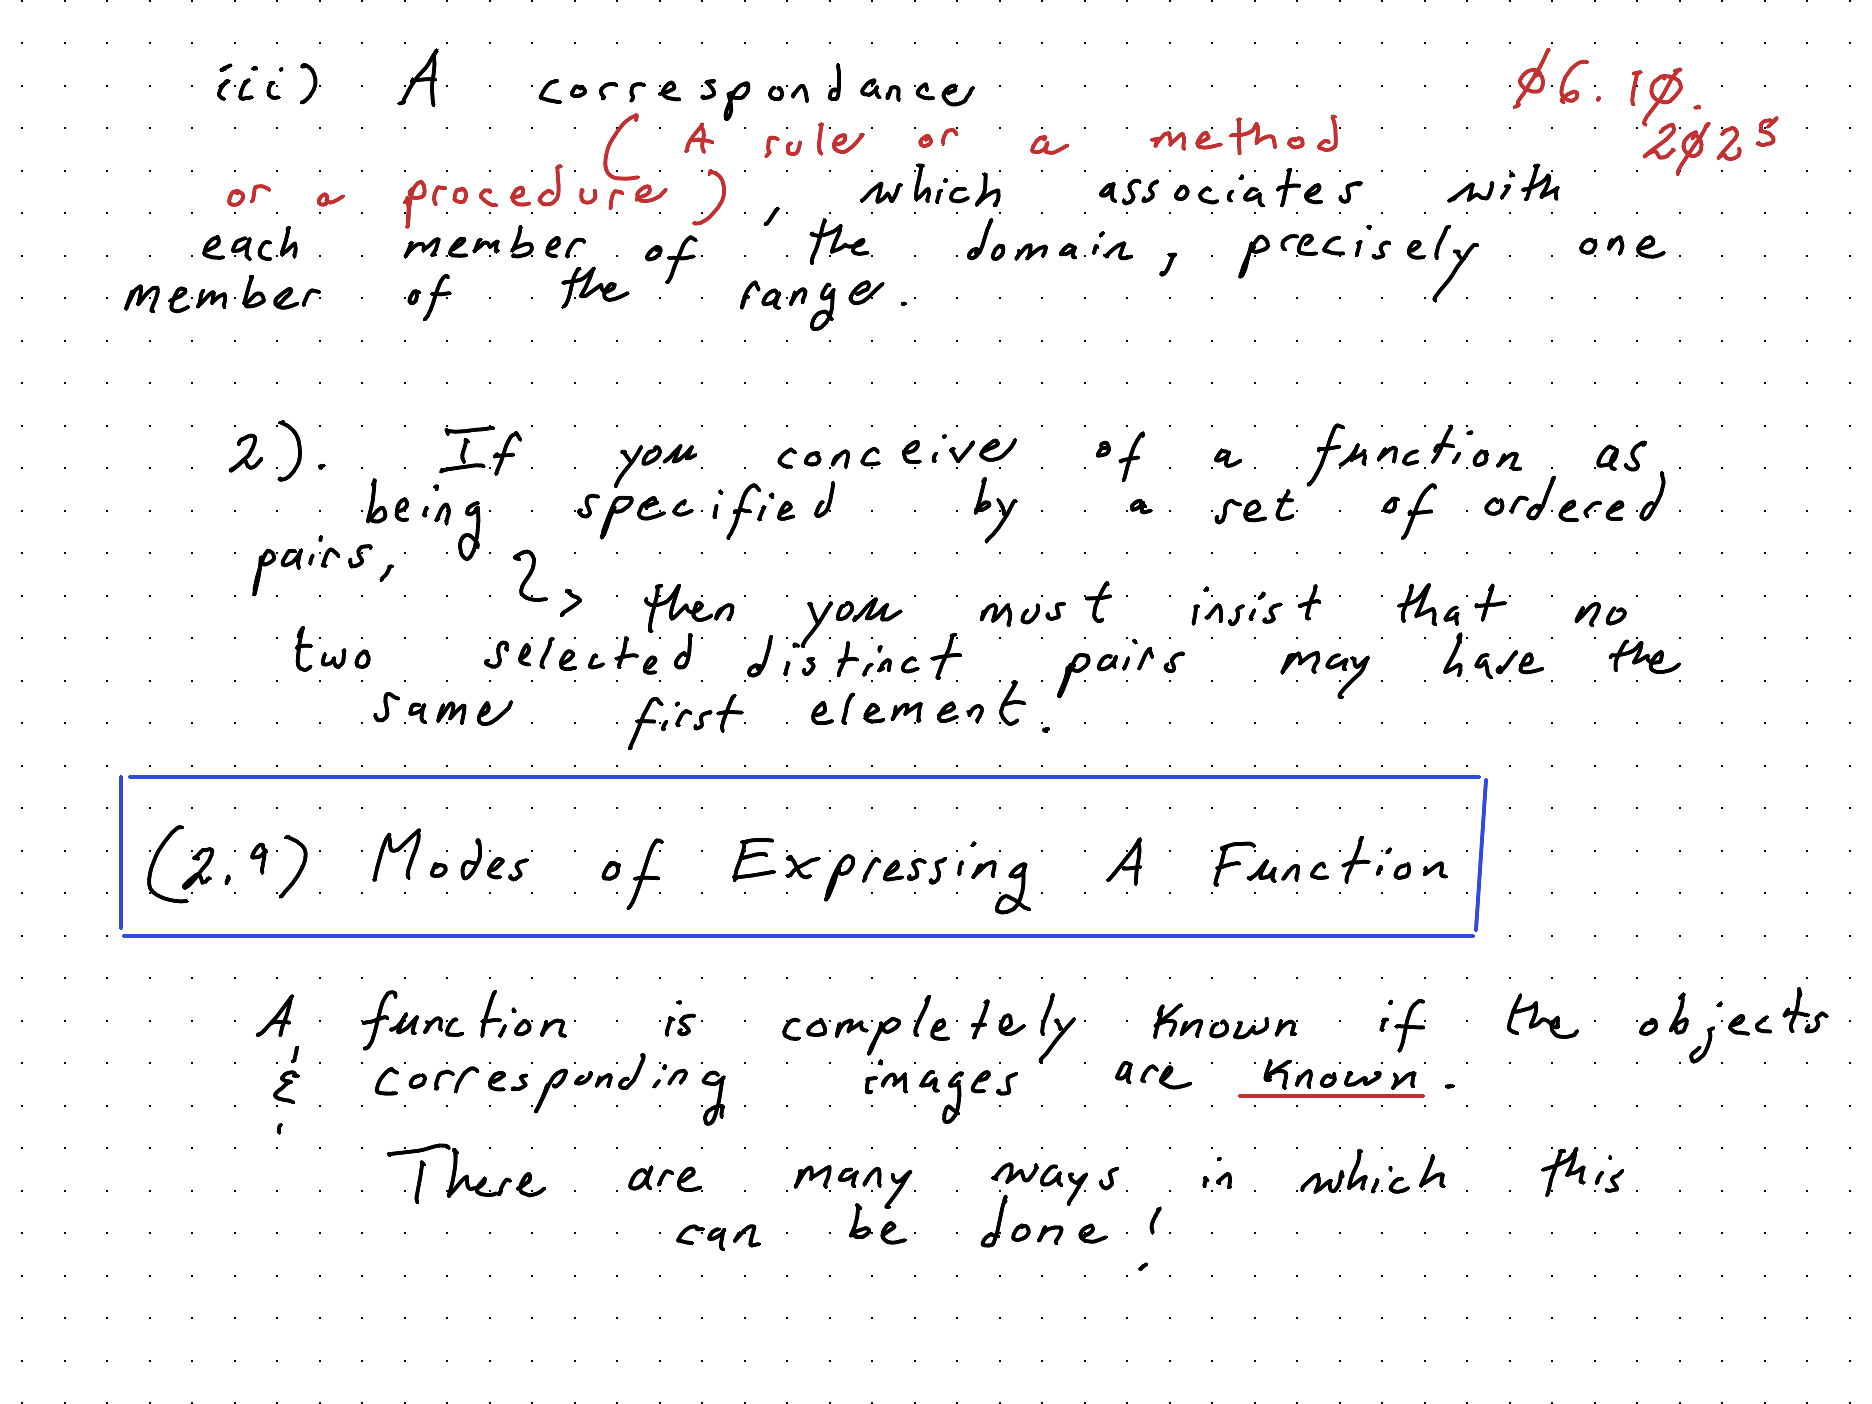 iii) A correspondance
Ø6.1Ø.
2Ø25
(A rule or a method
or a procedure), which associates with
each member of the domain, precisely one
member of the range.
2). If you conceive of a function as
being specified by a set of ordered
pairs,
then you must insist that no
two selected distinct pairs may have the
same first element.
(2.9) Modes of Expressing A Function
A function is completely known if the objects
& corresponding images are known.
There are many ways in which this
can be done!